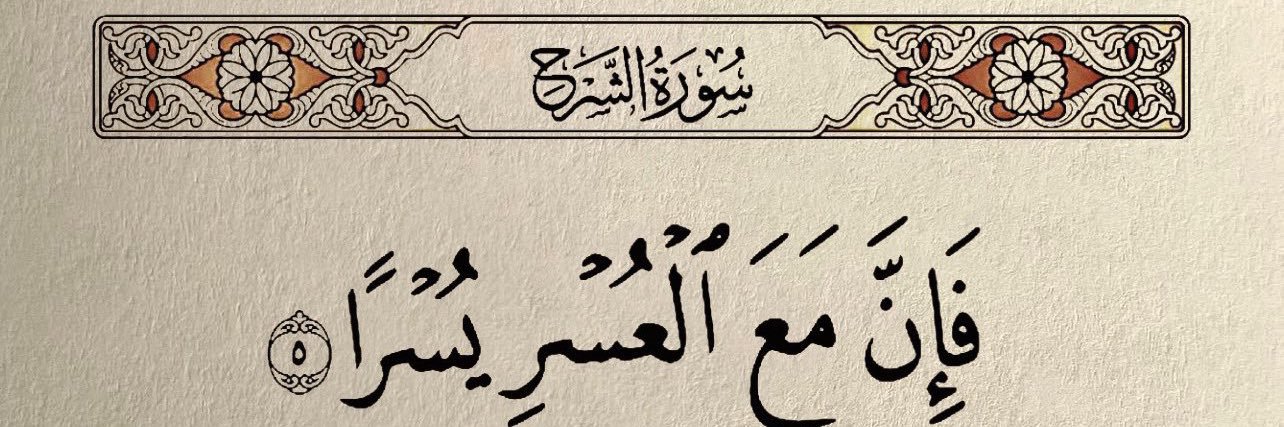 سُورَةُ الشَّرْحِ
فَإِنَّ مَعَ ٱلْعُسْرِ يُسْرًا ٥